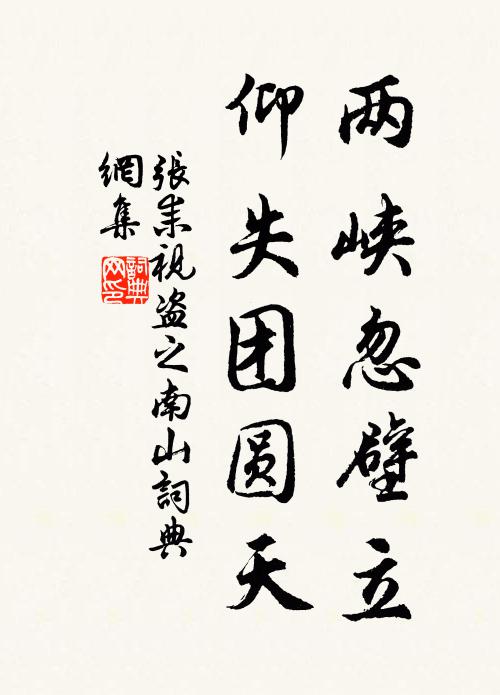 两峡忽壁立
仰失团圆天
張耒視盗之南山詞典
網集
詞典
网印